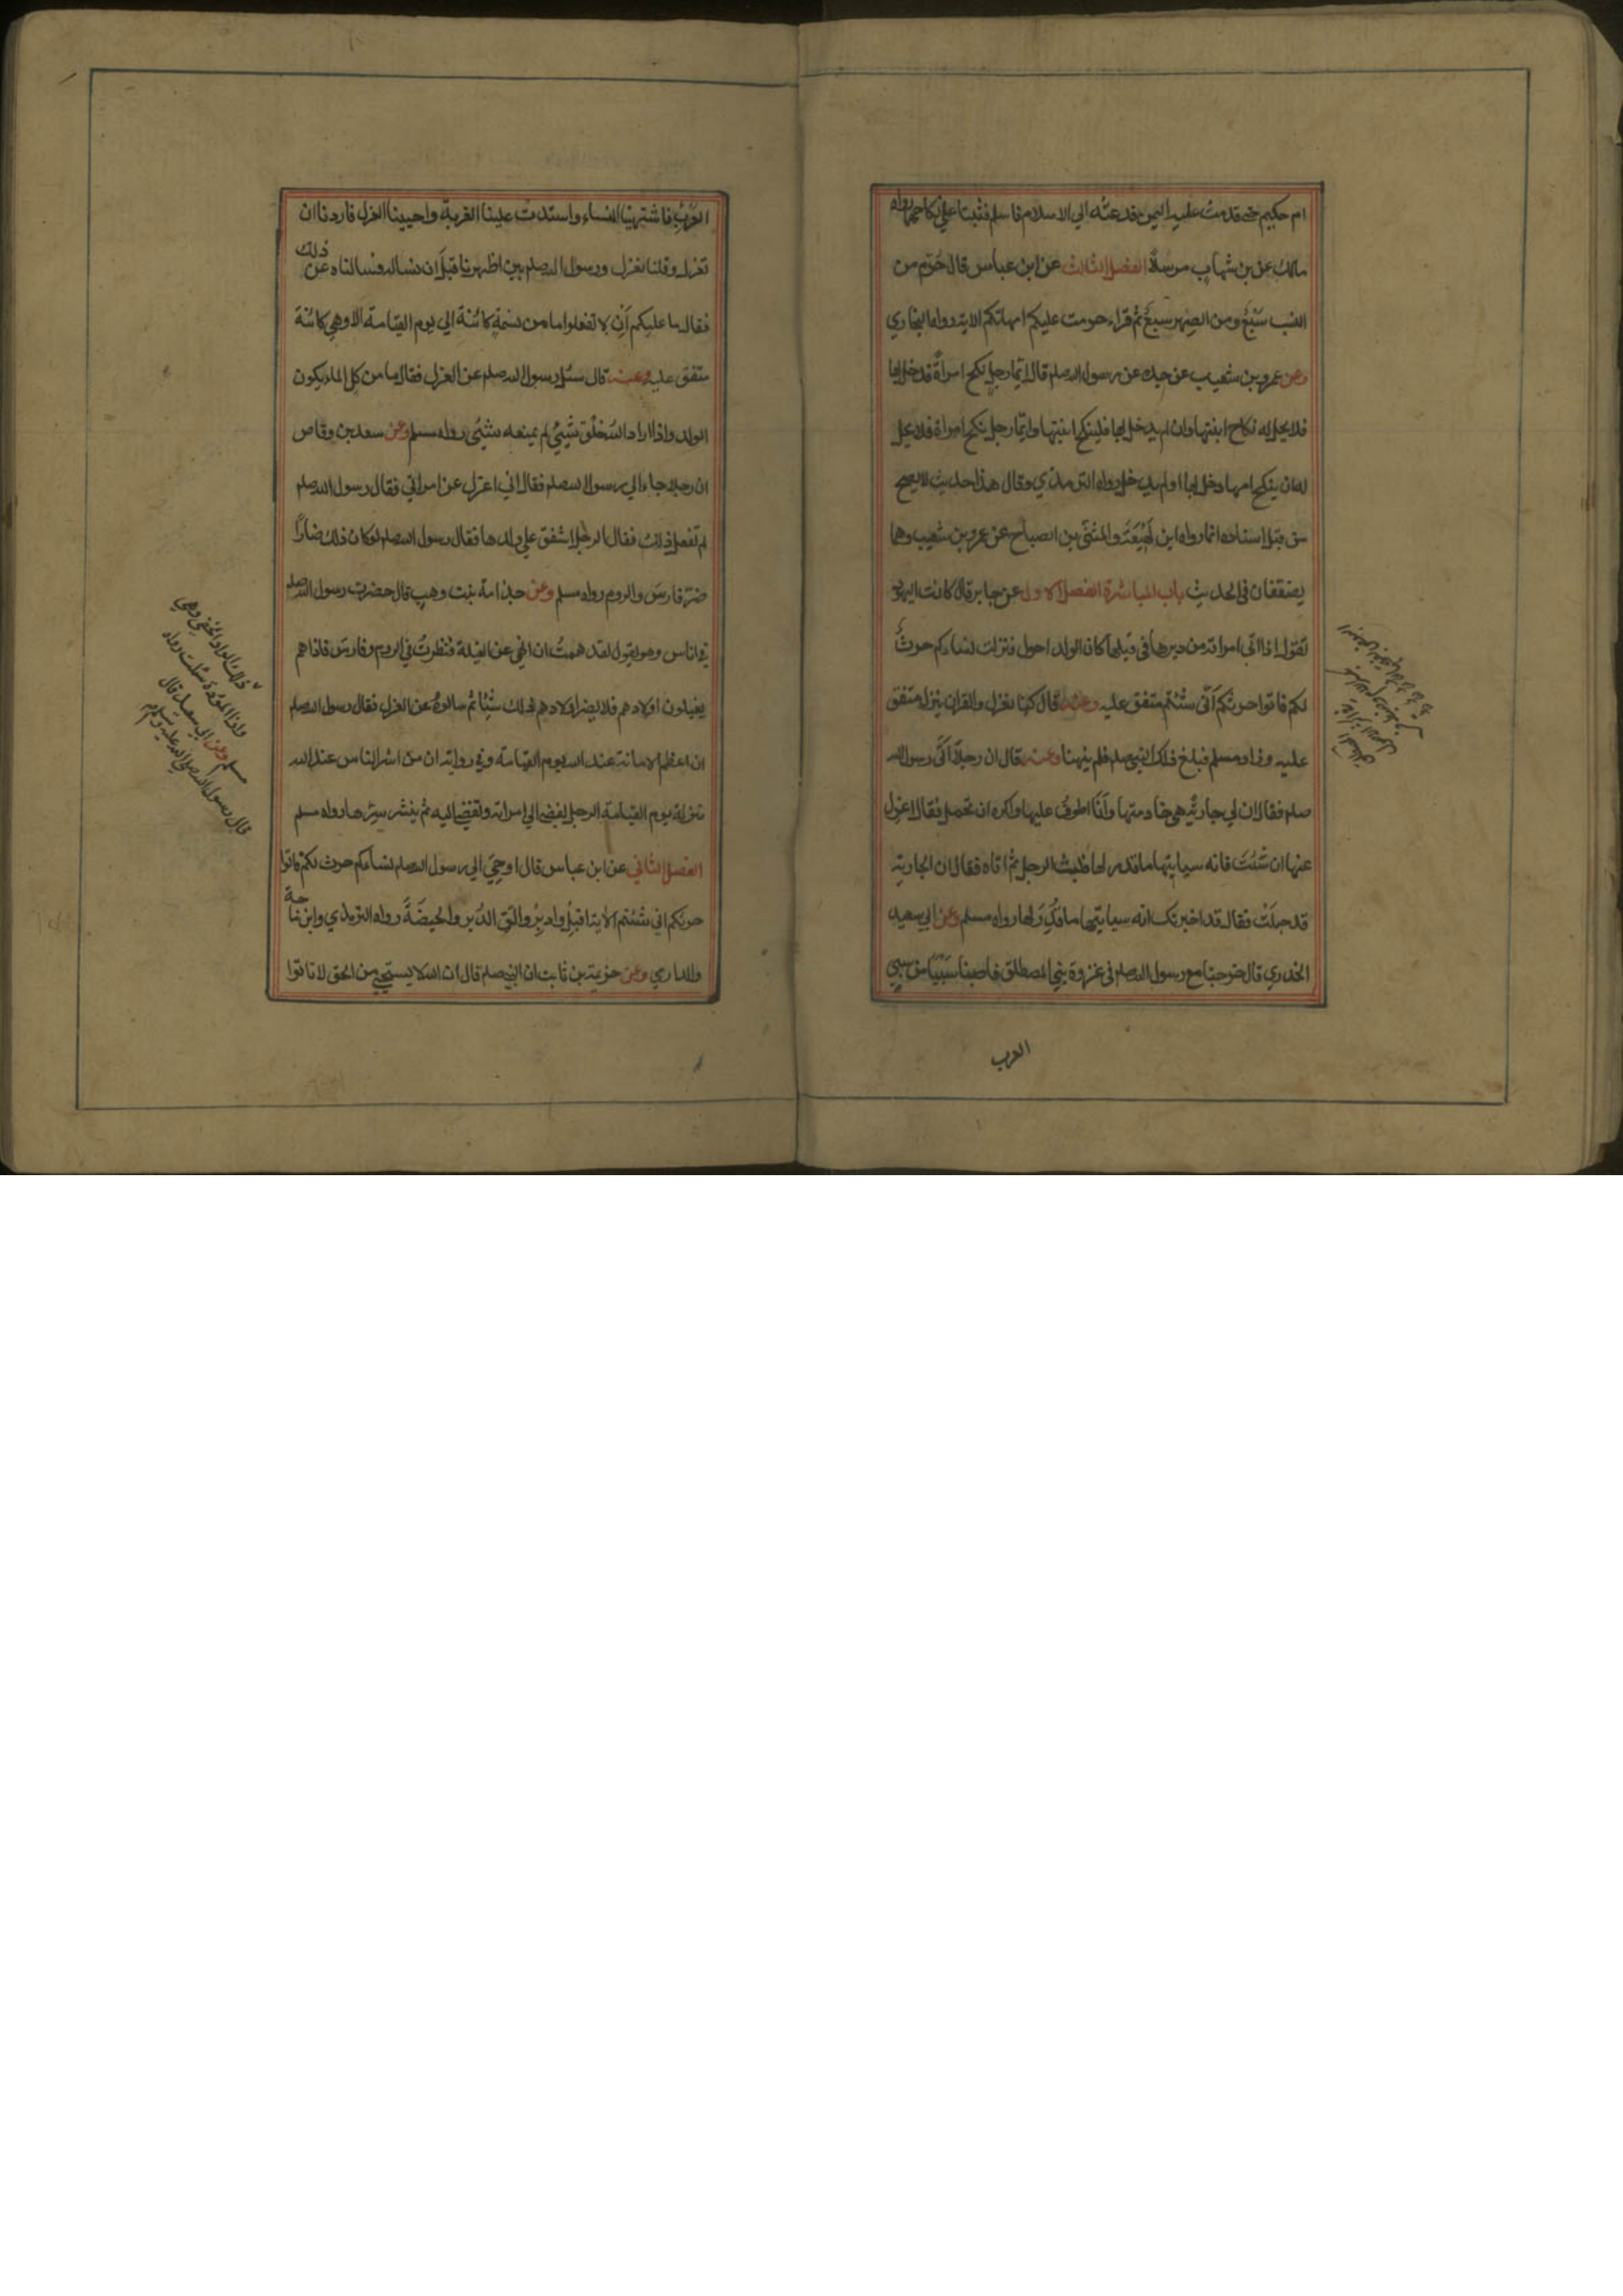 ام حكيم حتى قدمت عليه اليمن فدعته الي الاسلام فاسلم فثبتا علي نكاحهما رواه
مالك عن بن شهاب مرسلاً الفصل الثالث عن ابن عباس قال حُرّم من
النسب سَبْعٌ ومن الصهر سَبْعٌ ثم قراء حرمت عليكم امهاتكم الاية رواه البخاري
وعن عمرو بن شعيب عن جده عن رسول الله صلم قال ايّما رجل نكح امراةً فدخل بها
فلا يحل له نكاح ابنتها وان لم يدخل بها فلينكح ابنتها وايّما رجل نكح امراة فلا يحل
له ان ينكح امها دخل بها اولم يدخل رواه الترمذي وقال هذا حديث لا يصح
من قبل اسناده انما رواه ابن لَهِيْعَةَ والمثنّى بن الصباح عن عمرو بن شعيب وهما
يضعفان في الحديثِ باب المباشرة الفصل الاول عن جابر قال كانت اليهود
تقول اذا اتى امراته من دبرها في قبلها كان الولد احول فنزلت نساءكم حرثٌ
لكم فاتوا حرثكم اَنّى شئتم متفق عليه وعنه قال كنا نعزل والقران ينزل متفق
عليه وزاد مسلم فبلغ ذلك النبي صلم فلم ينهنا وعنه قال ان رجلاً اَتَى رسول الله
صلم فقال ان لي جاريةً هي خادمتها وَاَنَا اطوفُ عليها واكره ان تحمل فقال اعزل
عنها ان شئتَ فانه سياتيها ما قدر لها فلبث الرجل ثم اتاه فقال ان الجارية
قد حبلَتْ فقال قد اخبرتك انه سياتيها ما قُدِّرَ لها رواه مسلم وعن ابي سعيد
الخدري قال خرجنا مع رسول الله صلم في غزوة بني المصطلق فاصبنا سَبْيًا من سبي
العرب
العَرَبِ فاشتهينا النساء واستدت علينا الغربة واحببنا العزل فاردنا ان
نعزل وقلنا نعزل ورسول الله صلم بين اظهرنا قبل ان نساله فسالناه عن ذلك
فقال ما عليكم اَنْ لا تفعلوا ما من نسمةٍ كائنة الي يوم القيامة الا وهي كائنة
متفق عليه وعنه قال سئل رسول الله صلم عن العزل فقال ما من كل الماء يكون
الولد واذا اراد الله خلْق شَيْئٍ لم يمنعه شَيْئٌ رواه مسلم وعن سعد بن وقاص
ان رجلا جاء الي رسول الله صلم فقال اني اعزل عن امراتي فقال رسول الله صلم
لم تفعل ذلك فقال الرجل اشفق علي ولدها فقال رسول الله صلم لو كان ذلك ضارًا
ضرّ فارسَ والروم رواه مسلم وعن جذامة بنت وهب قال حضرت رسول الله صلم
في اناس وهو يقول لقد هممتُ ان انهي عن الغيلة فنظرتُ في الروم وفارسَ فاذا هم
يغيلون اولادهم فلا يضر اولادهم ذلك شَيْئًا ثم سالوهُ عن العزل فقال رسول الله صلم
ان اعظم الامانة عند الله يوم القيامة وفي رواية ان من اشر الناس عند الله
منزلة يوم القيامة الرجل يفضي الي امراته وتفضي اليه ثم ينشر سِرّها رواه مسلم
الفصل الثاني عن ابن عباس قال اوحِيَ الي رسول الله صلم نساءكم حرث لكم فاتوا
حرثكم اني شئتم الاية اقبِلْ وادبِرْ واتق الدُبر والحيضَةَ رواه الترمذي وابن ماجة
والدارمي وعن خزيمة بن ثابت ان النبي صلم قال ان الله لا يستحيي من الحق لا تاتوا
ذلك الواد الخفي وهي
واذا الموؤدة سئلت رواه
مسلم وعن ابي سعيد قال
قال رسول الله صلى الله عليه وسلم